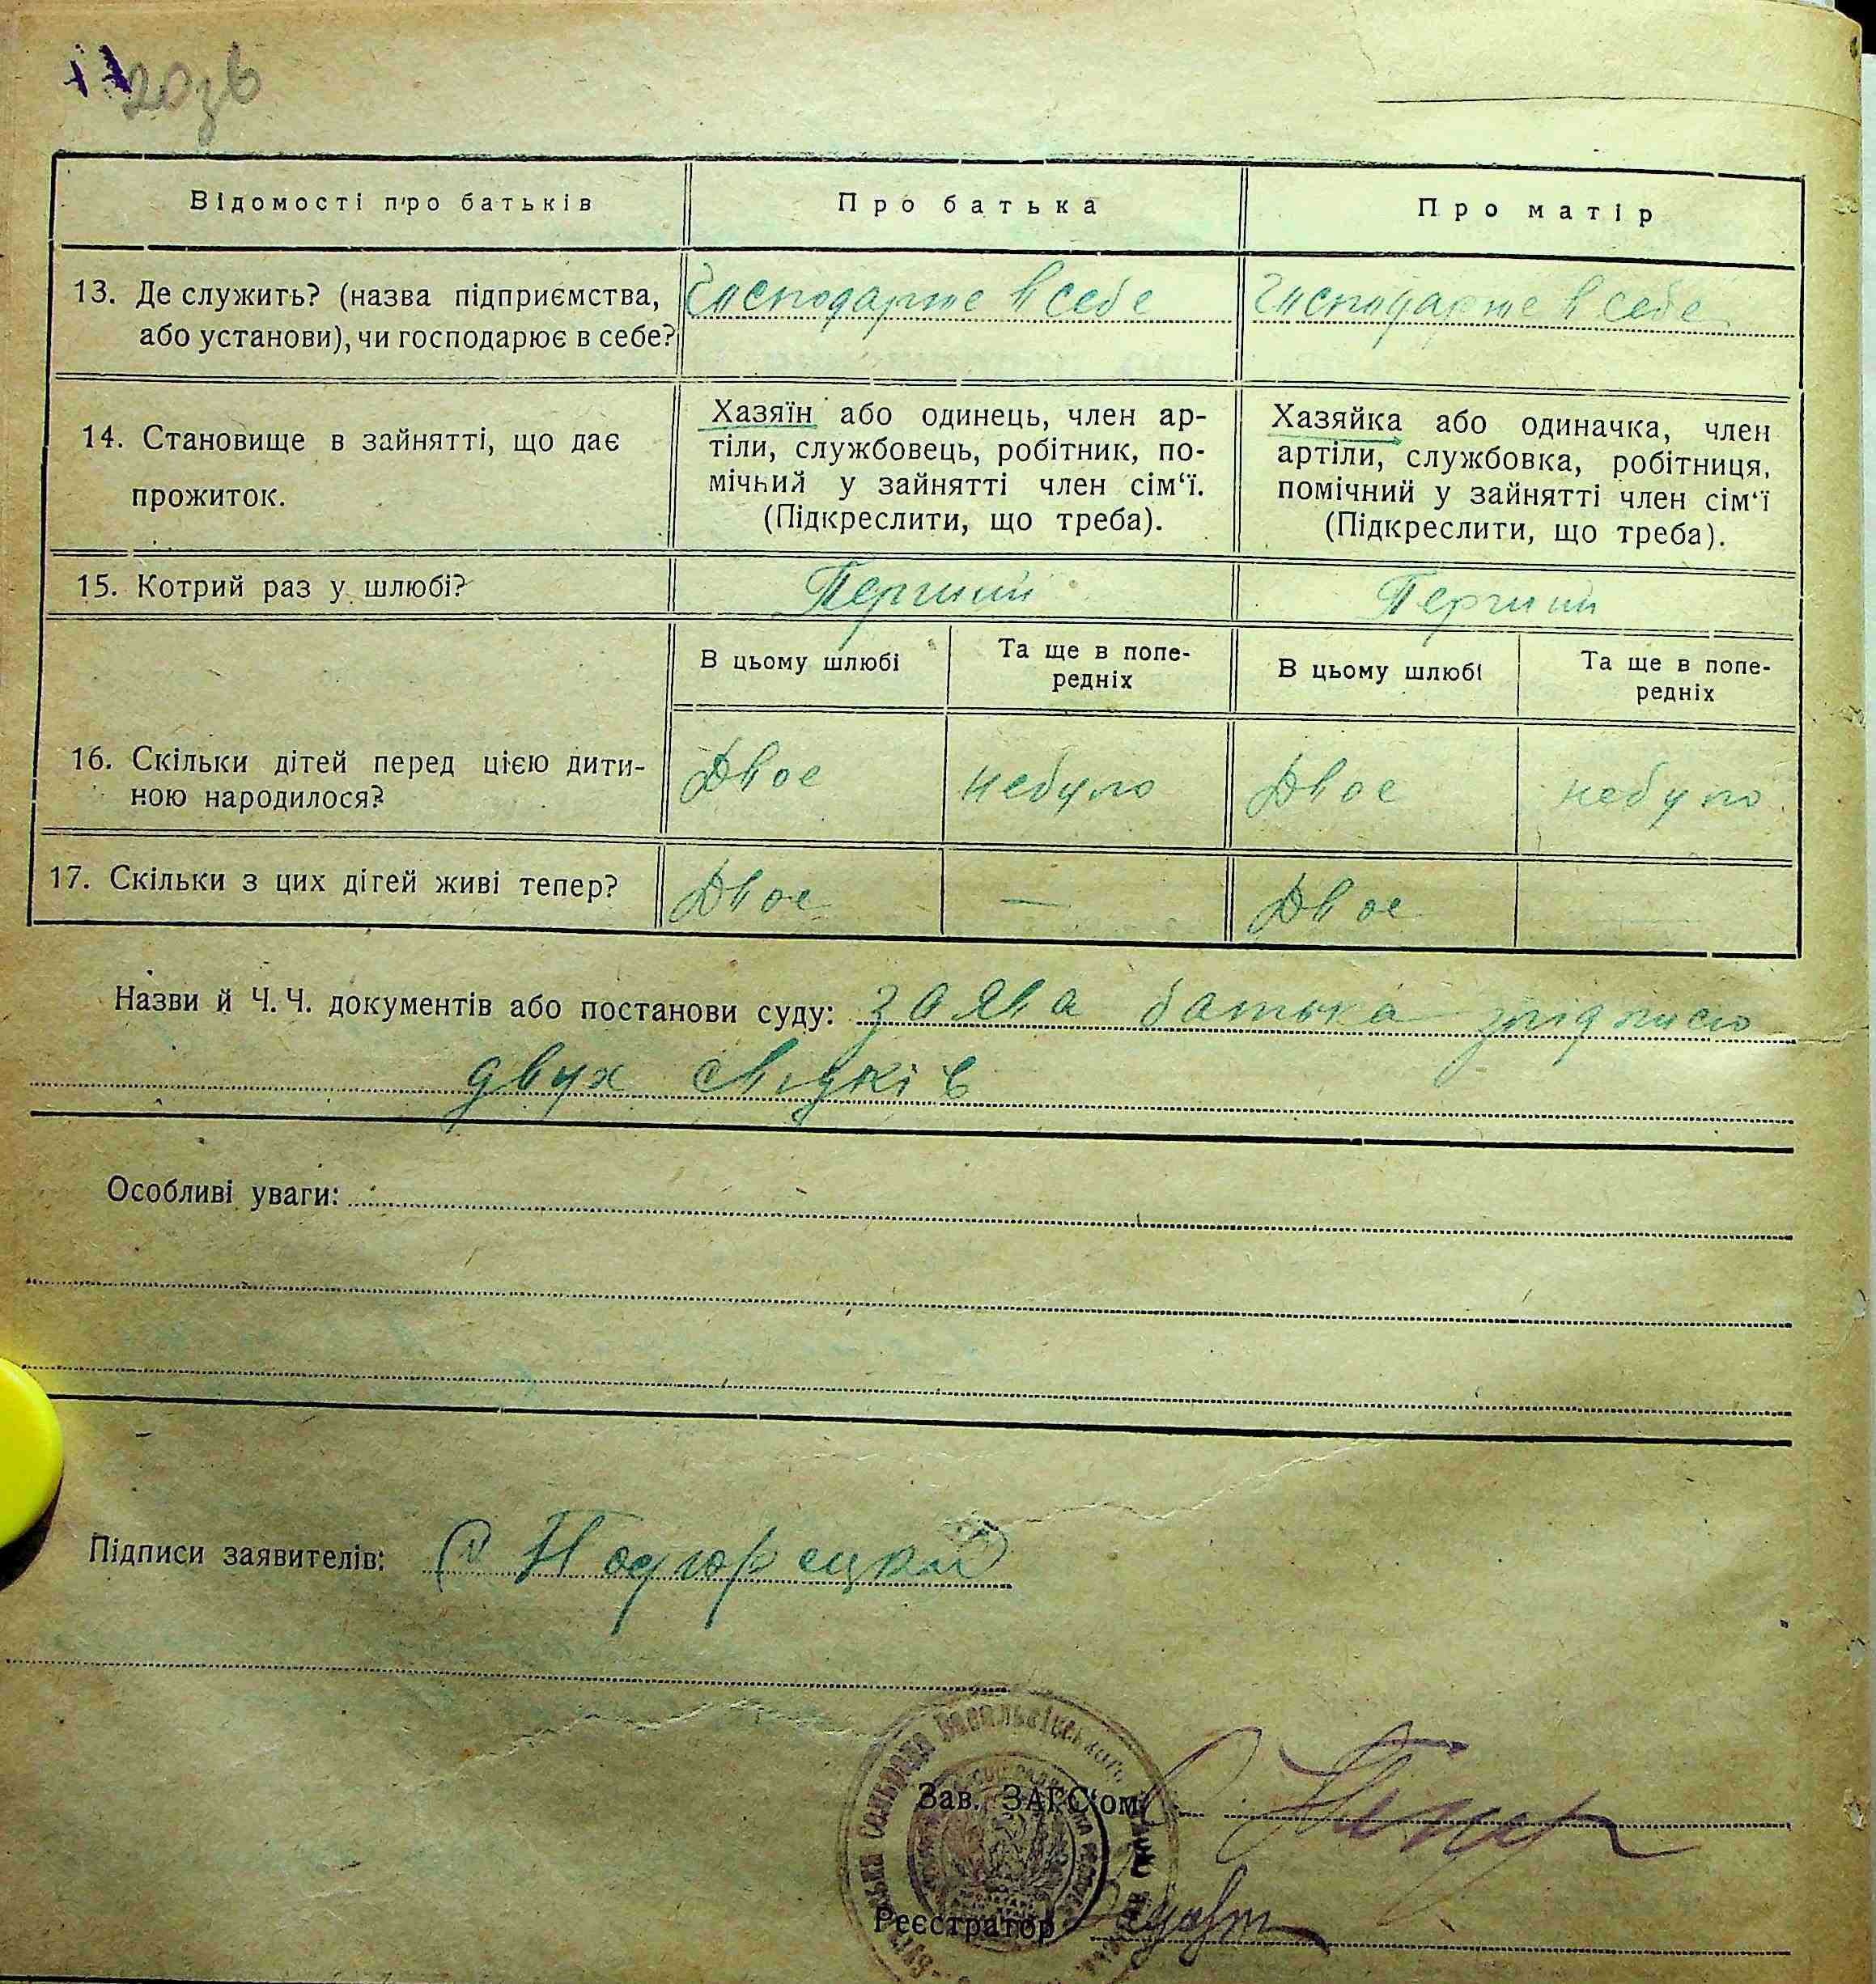 Відомості про батьків Про батька Про матір
13. Де служить? (назва підприємства, або установи), чи господарює в себе?
Господарює в себе
Господарює в себе
14. Становище в зайнятті, що дає прожиток.
Хазяїн або одинець, член ар-
тіли, службовець, робітник, по-
мічний у зайнятті член сім‘ї.
(Підкреслити, що треба).
Хазяйка або одиначка, член
артіли, службовка, робітниця,
помічний у зайнятті член сім‘ї
(Підкреслити, що треба).
15. Котрий раз у шлюбі? Перший Перший
В цьому шлюбі Та ще в попе-
редніх В цьому шлюбі Та ще в попе-
редніх
16. Скільки дітей перед цією дити-
ною народилося? Двоє небуло Двоє небуло
17. Скільки з цих дітей живі тепер? Двоє — Двоє
Назви й Ч. Ч. документів або постанови суду: заява батька
двух свідків
Особливі уваги:
Підписи заявителів: Подгорецкий
Зав. ЗАГС‘ом
Реєстратор